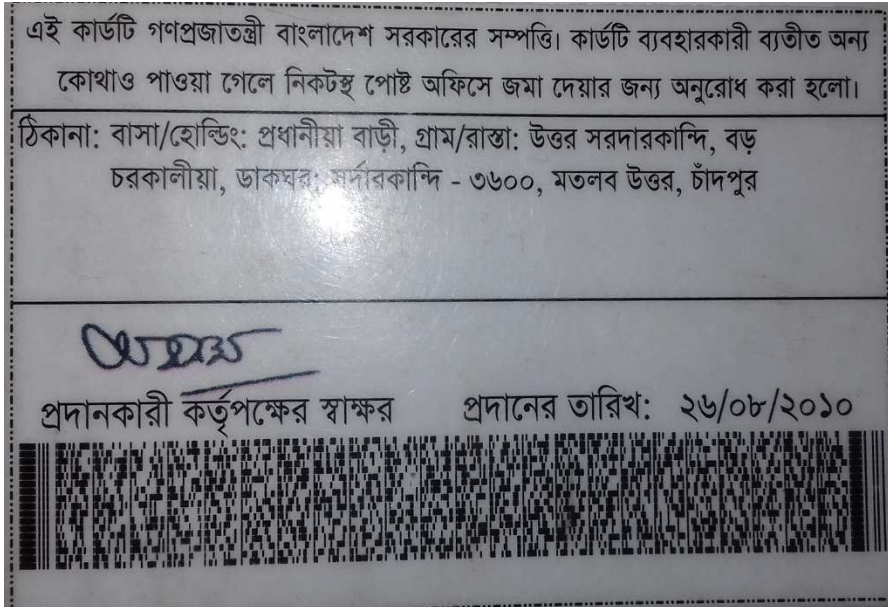 এই কার্ডটি গণপ্রজাতন্ত্রী বাংলাদেশ সরকারের সম্পত্তি। কার্ডটি ব্যবহারকারী ব্যতীত অন্য
কোথাও পাওয়া গেলে নিকটস্থ পোষ্ট অফিসে জমা দেয়ার জন্য অনুরোধ করা হলো।
ঠিকানা: বাসা/হোল্ডিং: প্রধানীয়া বাড়ী, গ্রাম/রাস্তা: উত্তর সরদারকান্দি, বড়
চরকালীয়া, ডাকঘর: সর্দারকান্দি - ৩৬০০, মতলব উত্তর, চাঁদপুর
প্রদানকারী কর্তৃপক্ষের স্বাক্ষর প্রদানের তারিখ: ২৬/০৮/২০১০